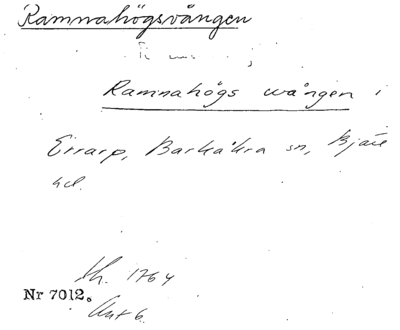 Ramnahögsvången
Ramnahögs wången i
Errarp, Barkåkra sn, Bjäre
hd.
Sk. 1764
Nr 7012.
Akt 6.